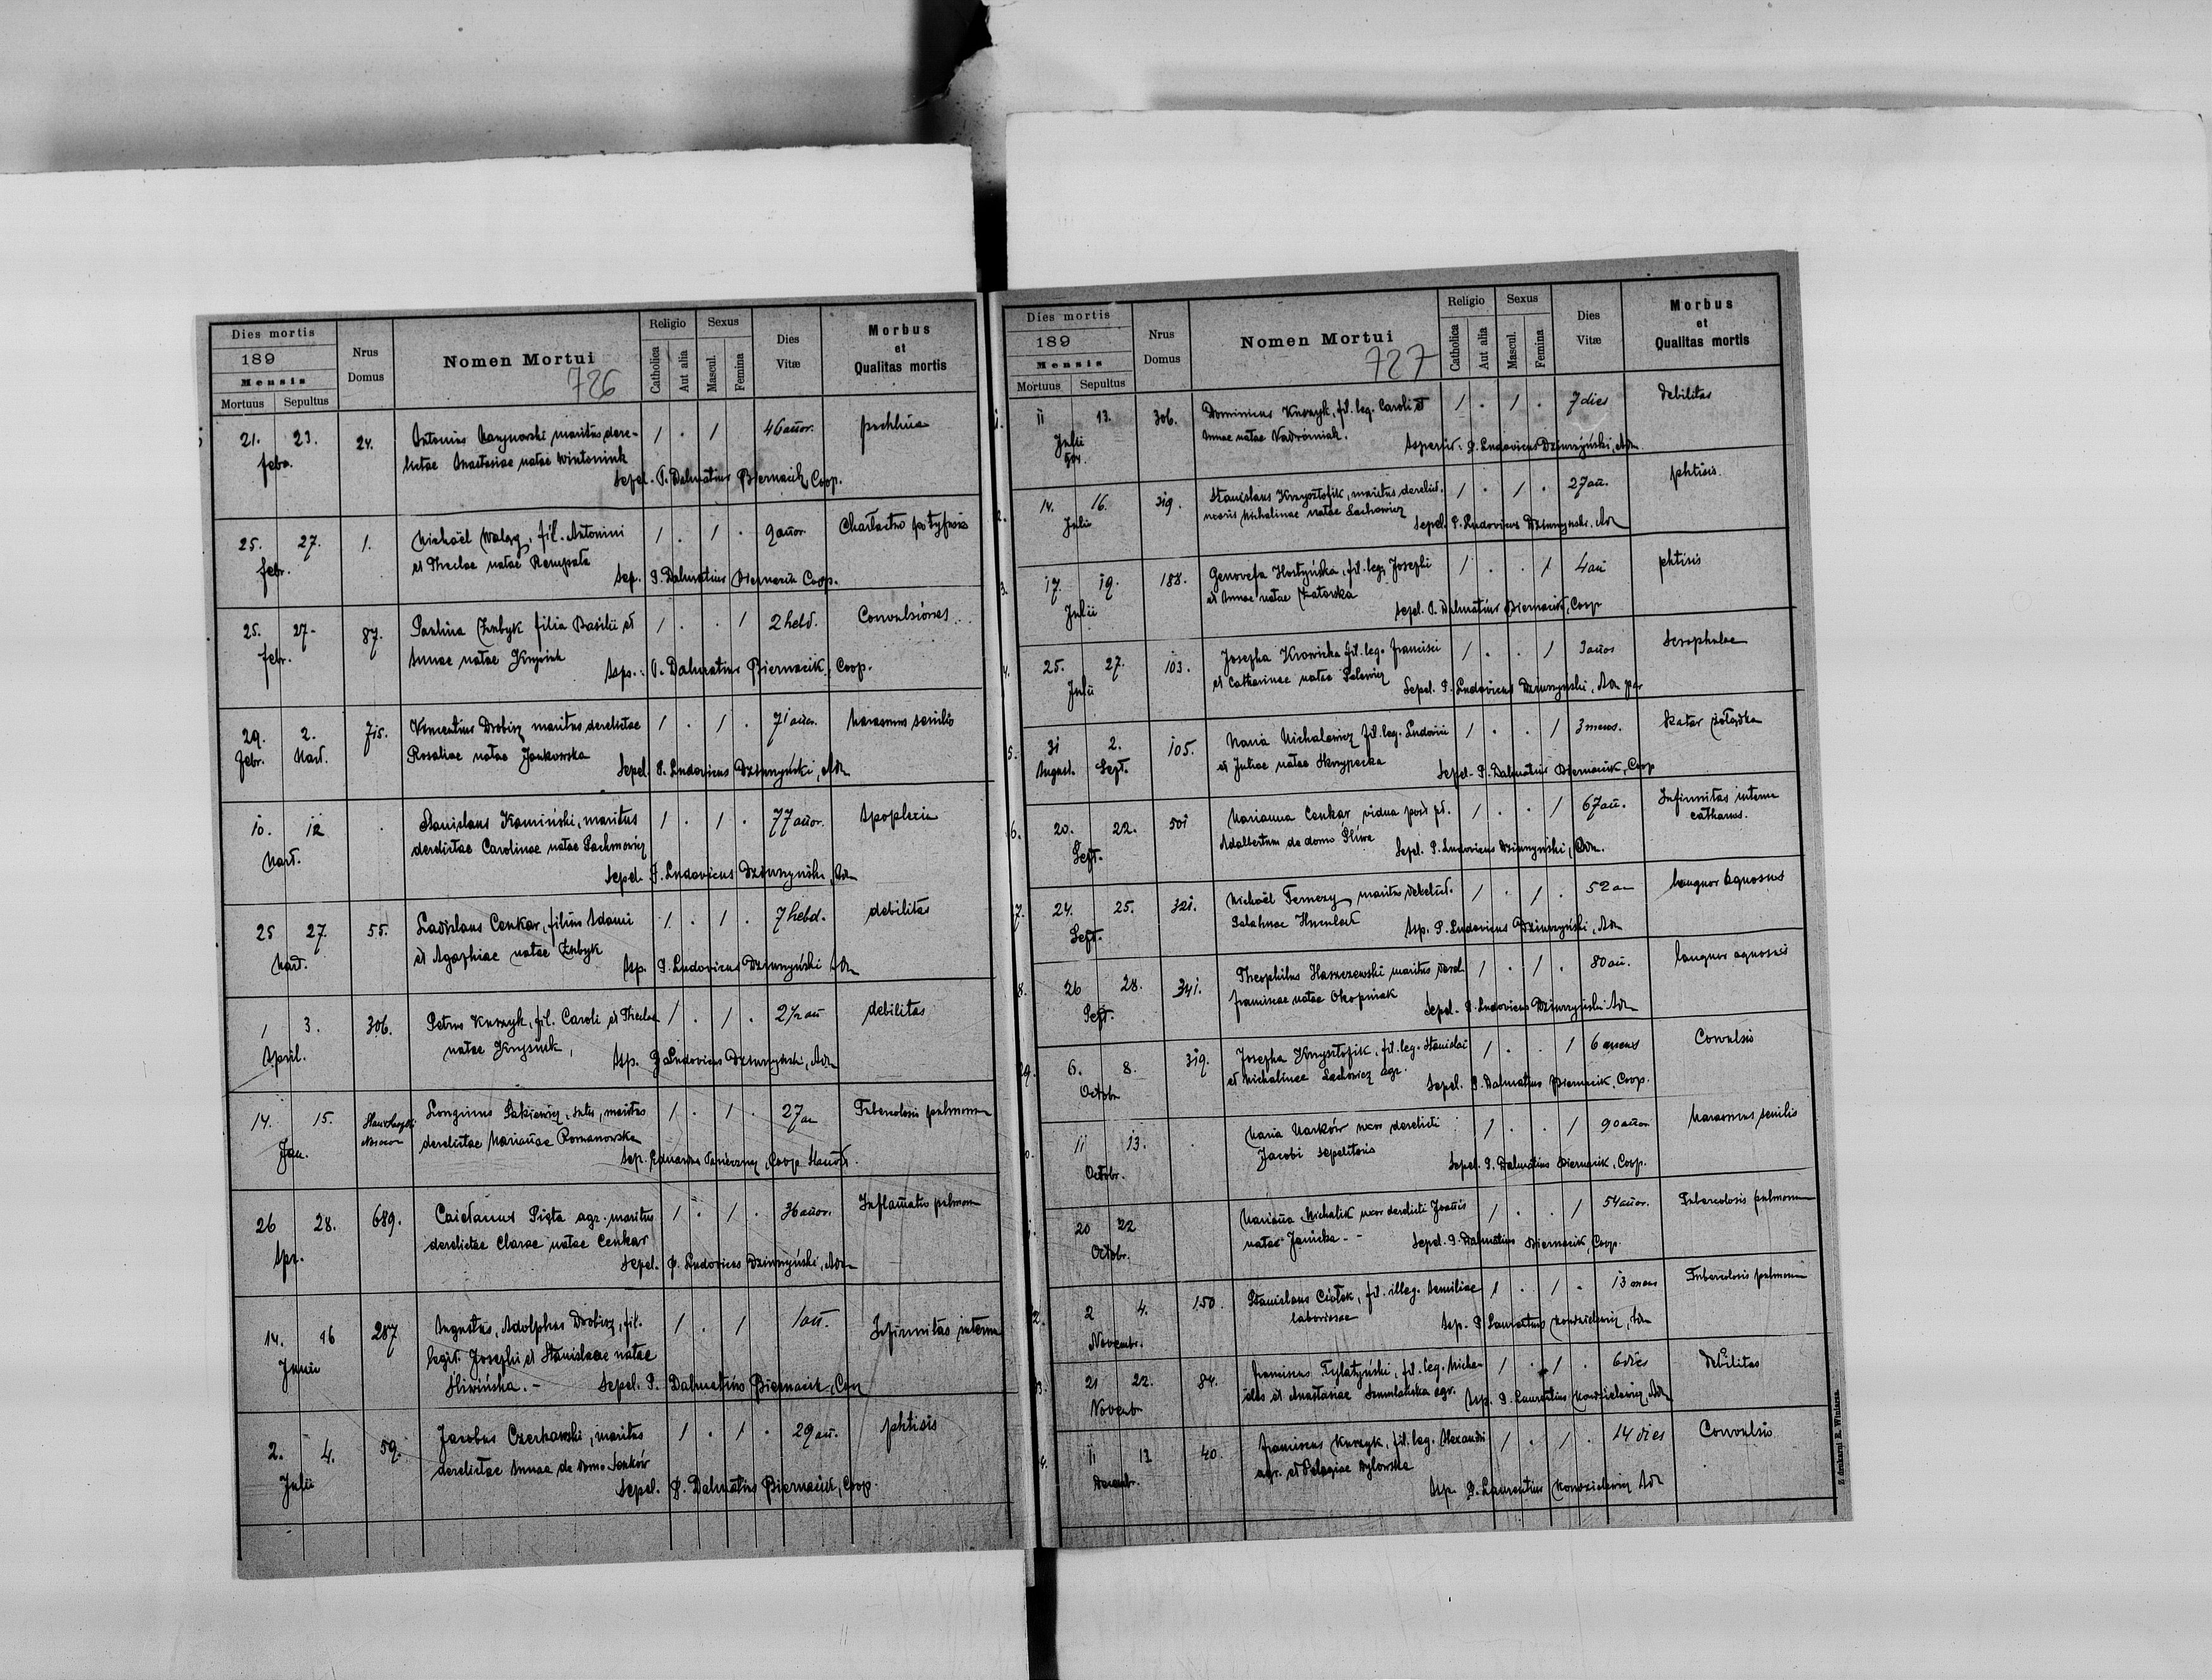 Dies mortis
189
Mensis
Mortuus Sepultus
Nrus Domus
Nomen Mortui
726
Religio
Catholica Aut alia
Sexus
Mascul. Femina
Dies Vitæ
Morbus et Qualitas mortis
21. 23. 24. Antonius maritus dere- 1 . 1 46 añor.
febr. lictae Anastasiae natae
Sepel. P. Dalmatius Biernacik, Coop.
25. 27. 1. Michaël fil. Antonini 1 . 1 . 9 añor.
febr. et Theclae natae
sep. P. Dalmatius Biernacik Coop.
25. 27. 87. Paulina Zubyk filia Basilii et 1 . . 1 2 hebd. Convulsiones
febr. Annae natae Krysiuk
Asp. P. Dalmatius Biernacik, Coop.
29. 2. 715. Vincentius Drobisz maritus derelictae 1 . 1 . 71 añor. Marasmus senilis
febr. Mart. Rosaliae natae Jankowska
Sepel. P. Ludovicus Dziurzyński, Adm
10. 12 . Stanislaus Kamiński, maritus 1 . 1 . 77 añor. Apoplexia
Mart. derelictae Carolinae natae
Sepel. P. Ludovicus Dziurzyński, Adm
25 27. 55. Ladislaus Cenkar, filius Adami 1 . 1 . 7 hebd. debilitas
Mart. et Agaphiae natae Zubyk
Asp. P. Ludovicus Dziurzyński Adm
1 3. 306. Petrus Kurzyk, fil. Caroli et Theclae 1 . 1 . 2 1/2 añ debilitas
April. natae Krysiuk,
Asp. P. Ludovicus Dziurzyński, Adm
14. 15. Longinus maritus 1 . 1 . 27 an Tuberculosis pulmonum
Jan. derelictae Mariañae Romanowska
sep. Coop.
26 28. 689. Caietanus Pięta agr. maritus 1 . 1 . 36 añor. Inflam̃atio pulmon
Apr. derelictae Clarae natae Cenkar
Sepel. P. Ludovicus Dziurzyński, Adm
14. 16 287 Augustus, Adolphus Drobisz, fil. 1 . 1 1 añ. Infirmitas interna
Junii legit. Josephi et Stanislaae natae
Śliwińska. - Sepel. P. Dalmatius Biernacik, Coop
2. 4. 59. Jacobus Czerkawski, maritus 1 . 1 . 29 añ. phtisis
Julii derelictae Annae de domo Senków
Sepel. P. Dalmatius Biernacik, Coop.
Dies mortis
189
Mensis
Mortuus Sepultus
Nrus Domus
Nomen Mortui
727
Religio
Catholica Aut alia
Sexus
Mascul. Femina
Dies Vitæ
Morbus et Qualitas mortis
1. 11 13. 306. Dominicus Kurzyk, fil. leg. Caroli et 1 . 1 . 7 dies debilitas
Julii Annae natae
P. Ludovicus Dziurzyński, Adm
2. 14. 16. 319. Stanislaus Krzysztofik, maritus derelict. 1 . 1 . 27 añ. phtisis
Julii uxoris Michalinae natae Lachowicz
Sepel. P. Ludovicus Dziurzyński, Adm
3. 17. 19. 188. Genovefa Hostyńska, fil. leg. Josephi 1 . . 1 4 añ phtisis
Julii et Annae natae Załowska
Sepel. P. Dalmatius Biernacik, Coop
4. 25. 27. 103. Josepha Krowicka fil. leg. Francisci 1 . . 1 3 años Scrophulae
Julii et Catharinae natae
Sepel. P. Ludovicus Dziurzyński, Adm par
5. 31 2. 105. Maria Michalewicz fil. leg. Ludovici 1 . . 1 3 mens. katar żołądka
August. Sept. et Juliae natae Skrzypecka
Sepel. P. Dalmatius Biernacik, Coop
6. 20. 22. 501 Marianna Cenkar vidua post pt. 1 . . 1 67 añ. Infirmitas interna
Sept. Adalbertum de domo Śliwa catharus.
Sepel. P. Ludovicus Dziurzyński, Adm.
7. 24. 25. 321. Michaël Ternezy, maritus derelict. 1 . 1 . 52 an languor aquosus
Sept.
Asp. P. Ludovicus Dziurzyński, Adm
8. 26 28. 341. Theophilus Haszczewski maritus derel. 1 . 1 . 80 añ. languor aquosus
Sept. Franciscae natae Okopniak
Sepel. P. Ludovicus Dziurzyński Adm
9. 6. 8. 319. Josepha Krzysztofik, fil. leg. Stanislai 1 . . 1 6 mens Convulsio
Octobr et Michalinae Lachowicz agr.
Sepel. P. Dalmatius Biernacik, Coop.
11 13. . Maria Marków uxor derelicti 1 . . 1 90 añor Marasmus senilis
Octobr. Jacobi sepelitoris
Sepel. P. Dalmatius Biernacik, Coop.
20 22 Mariaña Michalik uxor derelicti Joañis 1 . . 1 54 añor. Tuberculosis pulmonum
Octobr. natae Janicka. - -
Sepel. P. Dalmatius Biernacik, Coop.
2. 2 4. 150. Stanislaus Ciołek, fil. illeg. Aemiliae 1 . 1 . 13 mens Tuberculosis pulmonum
Novembr. laboriosae
Sep. P. Laurentius Kondzielewicz, Adm
3. 21 22. 84. Franciscus Tylatyński, fil. leg. Micha- 1 . 1 . 6 dies debilitas
Novembr elis et Anastasiae Szumlańska agr.
Asp. P. Laurentius Kondzielewicz, Adm
4. 11 12 40. Franciscus Kurzyk, fil. leg. Alexandri 1 . 1 . 14 dies Convulsio
Decembr. agr. et Pelagiae Dylowska
Asp. P. Laurentius Kondzielewicz Adm
Z drukarni E. Winiarza